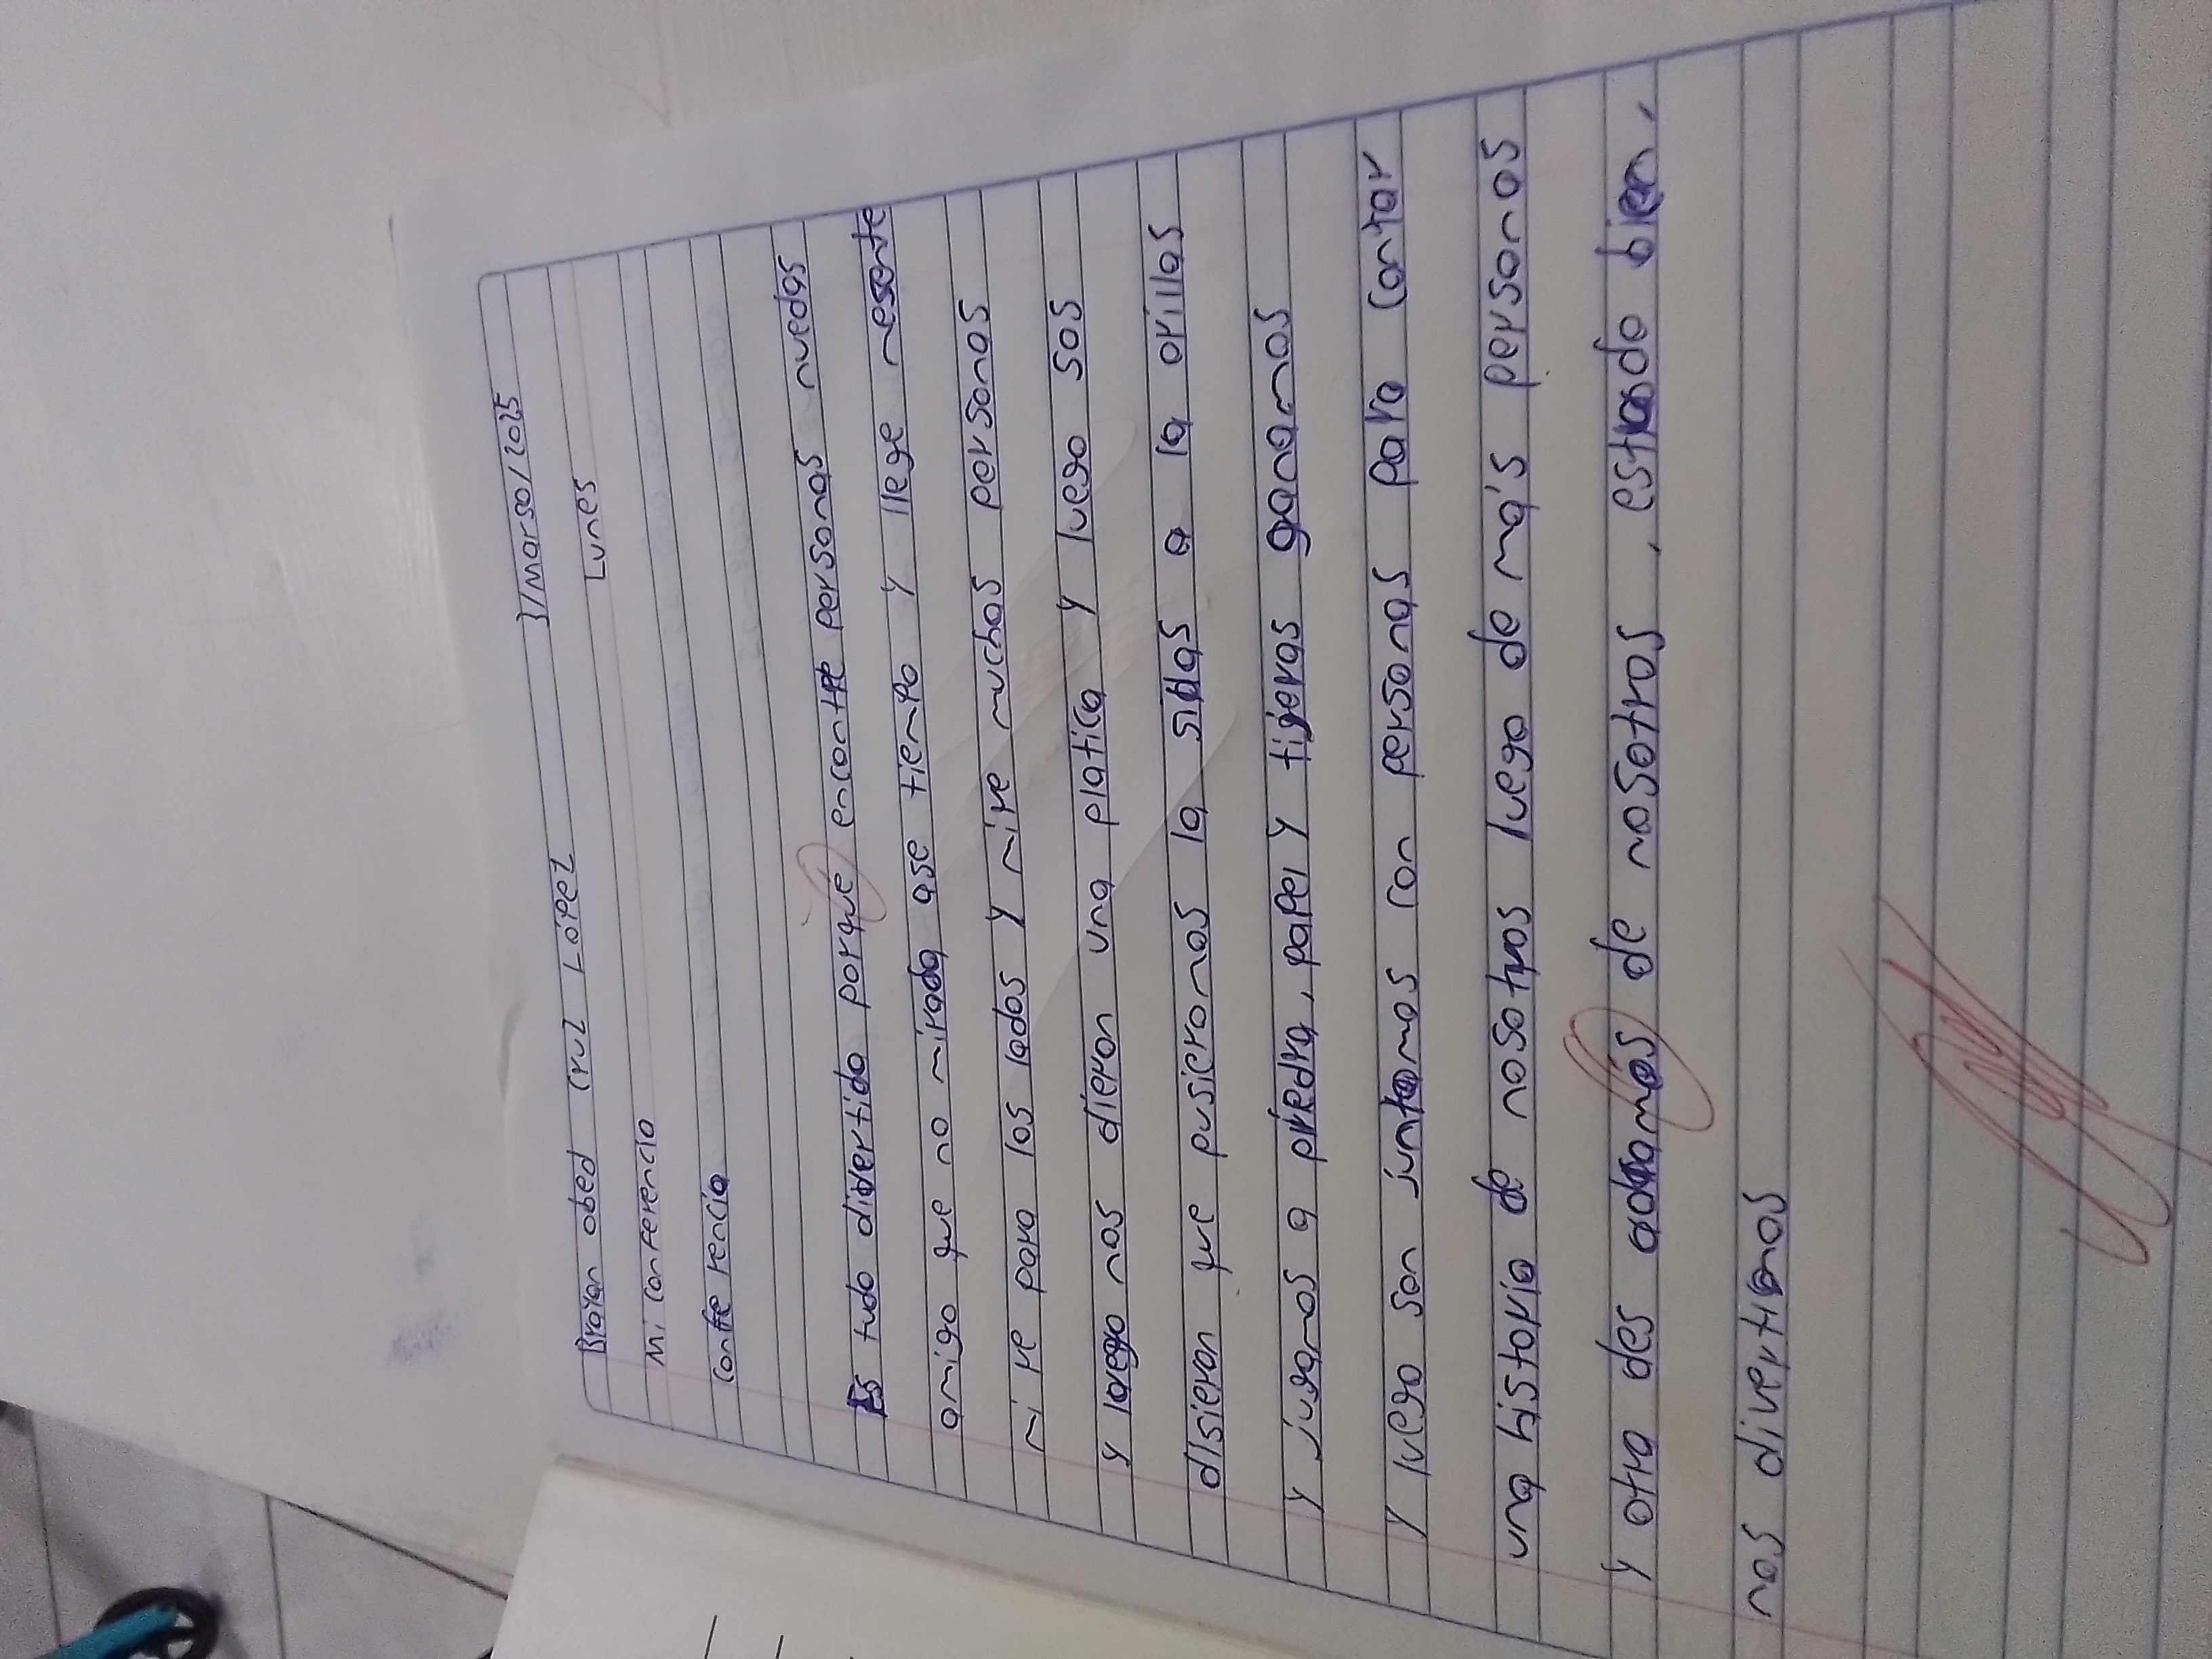 3/Marso/2025
Brayan obed Cruz López
Lunes
Mi conferencio
Confe rencia
Es tudo divertido porqué encontre personas nuedas
amigo que no mirada ase tiempo y llege resente
mi re para los lados y mire muchas personas
y luego nos dieron una platica y luego sos
disieron que pusieromos la sidas a la orillas
y jugamos a piedra, papel y tigeras ganamos
y luego son juntamos con personas para contar
una historia de nosotros luego de más personas
y otra des adamás de nosotros, estrado bien,
nos divertimos